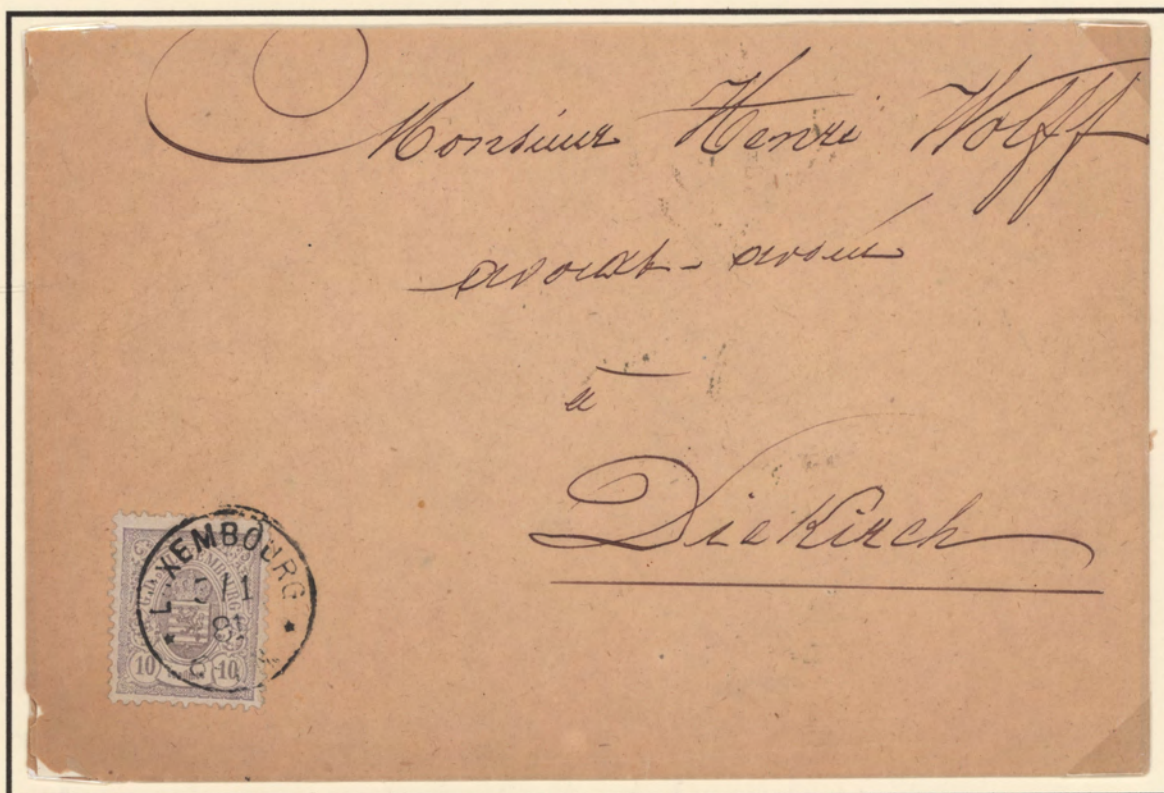 Monsieur Henri Wolff
avocat-avoué
à
Diekirch
LUXEMBOURG
10 10